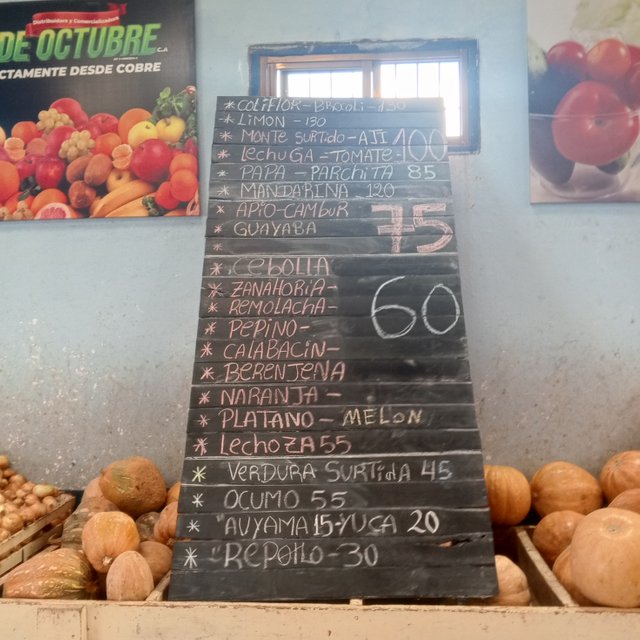 Distribuidora y Comercializadora
DE OCTUBRE C.A
CTAMENTE DESDE COBRE
* COLIFLOR - BROCOLI - 150
* LIMON - 130
* MONTE SURTIDO - AJI
* LechuGA - TOMATE - 100
* PAPA - PARCHITA 85
* MANDARINA 120
* APIO - CAMBUR
* GUAYABA 75
*
* CEBOLLA
* ZANAHORIA -
* REMOLACHA - 60
* PEPINO -
* CALABACIN -
* BERENJENA
* NARANJA -
* PLATANO - MELON
* LechoZA 55
* VERDURA SURTIDA 45
* OCUMO 55
* AUYAMA 15 - YUCA 20
* REPOLLO - 30